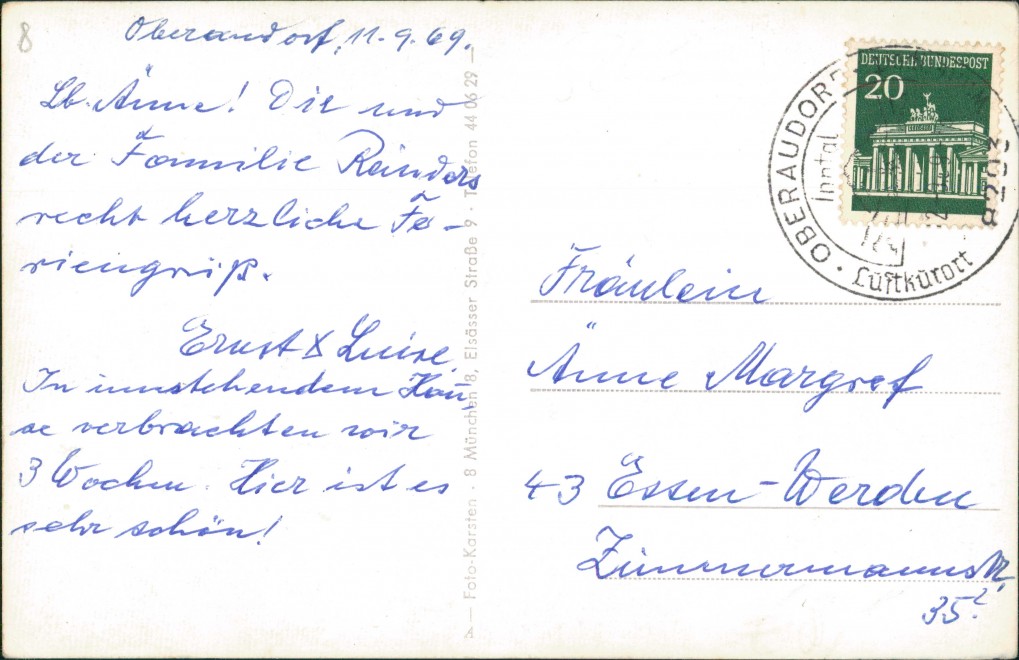 8
Oberaudorf, 11.9.69.
Lb. Änne! Dir und
der Familie Reinders
recht herzliche Fe-
riengrüße.
Ernst & Luise.
In umstehendem Hau-
se verbrachten wir
3 Wochen. Hier ist es
sehr schön!
Foto-Karsten · 8 München 8, Elsässer Straße 9 · Telefon 44 06 29
DEUTSCHE BUNDESPOST
20
OBERAUDORF
Inntal
8203
Luftkurort
Fräulein
Änne Margref
43 Essen-Werden
Zimmermannstr.
35?